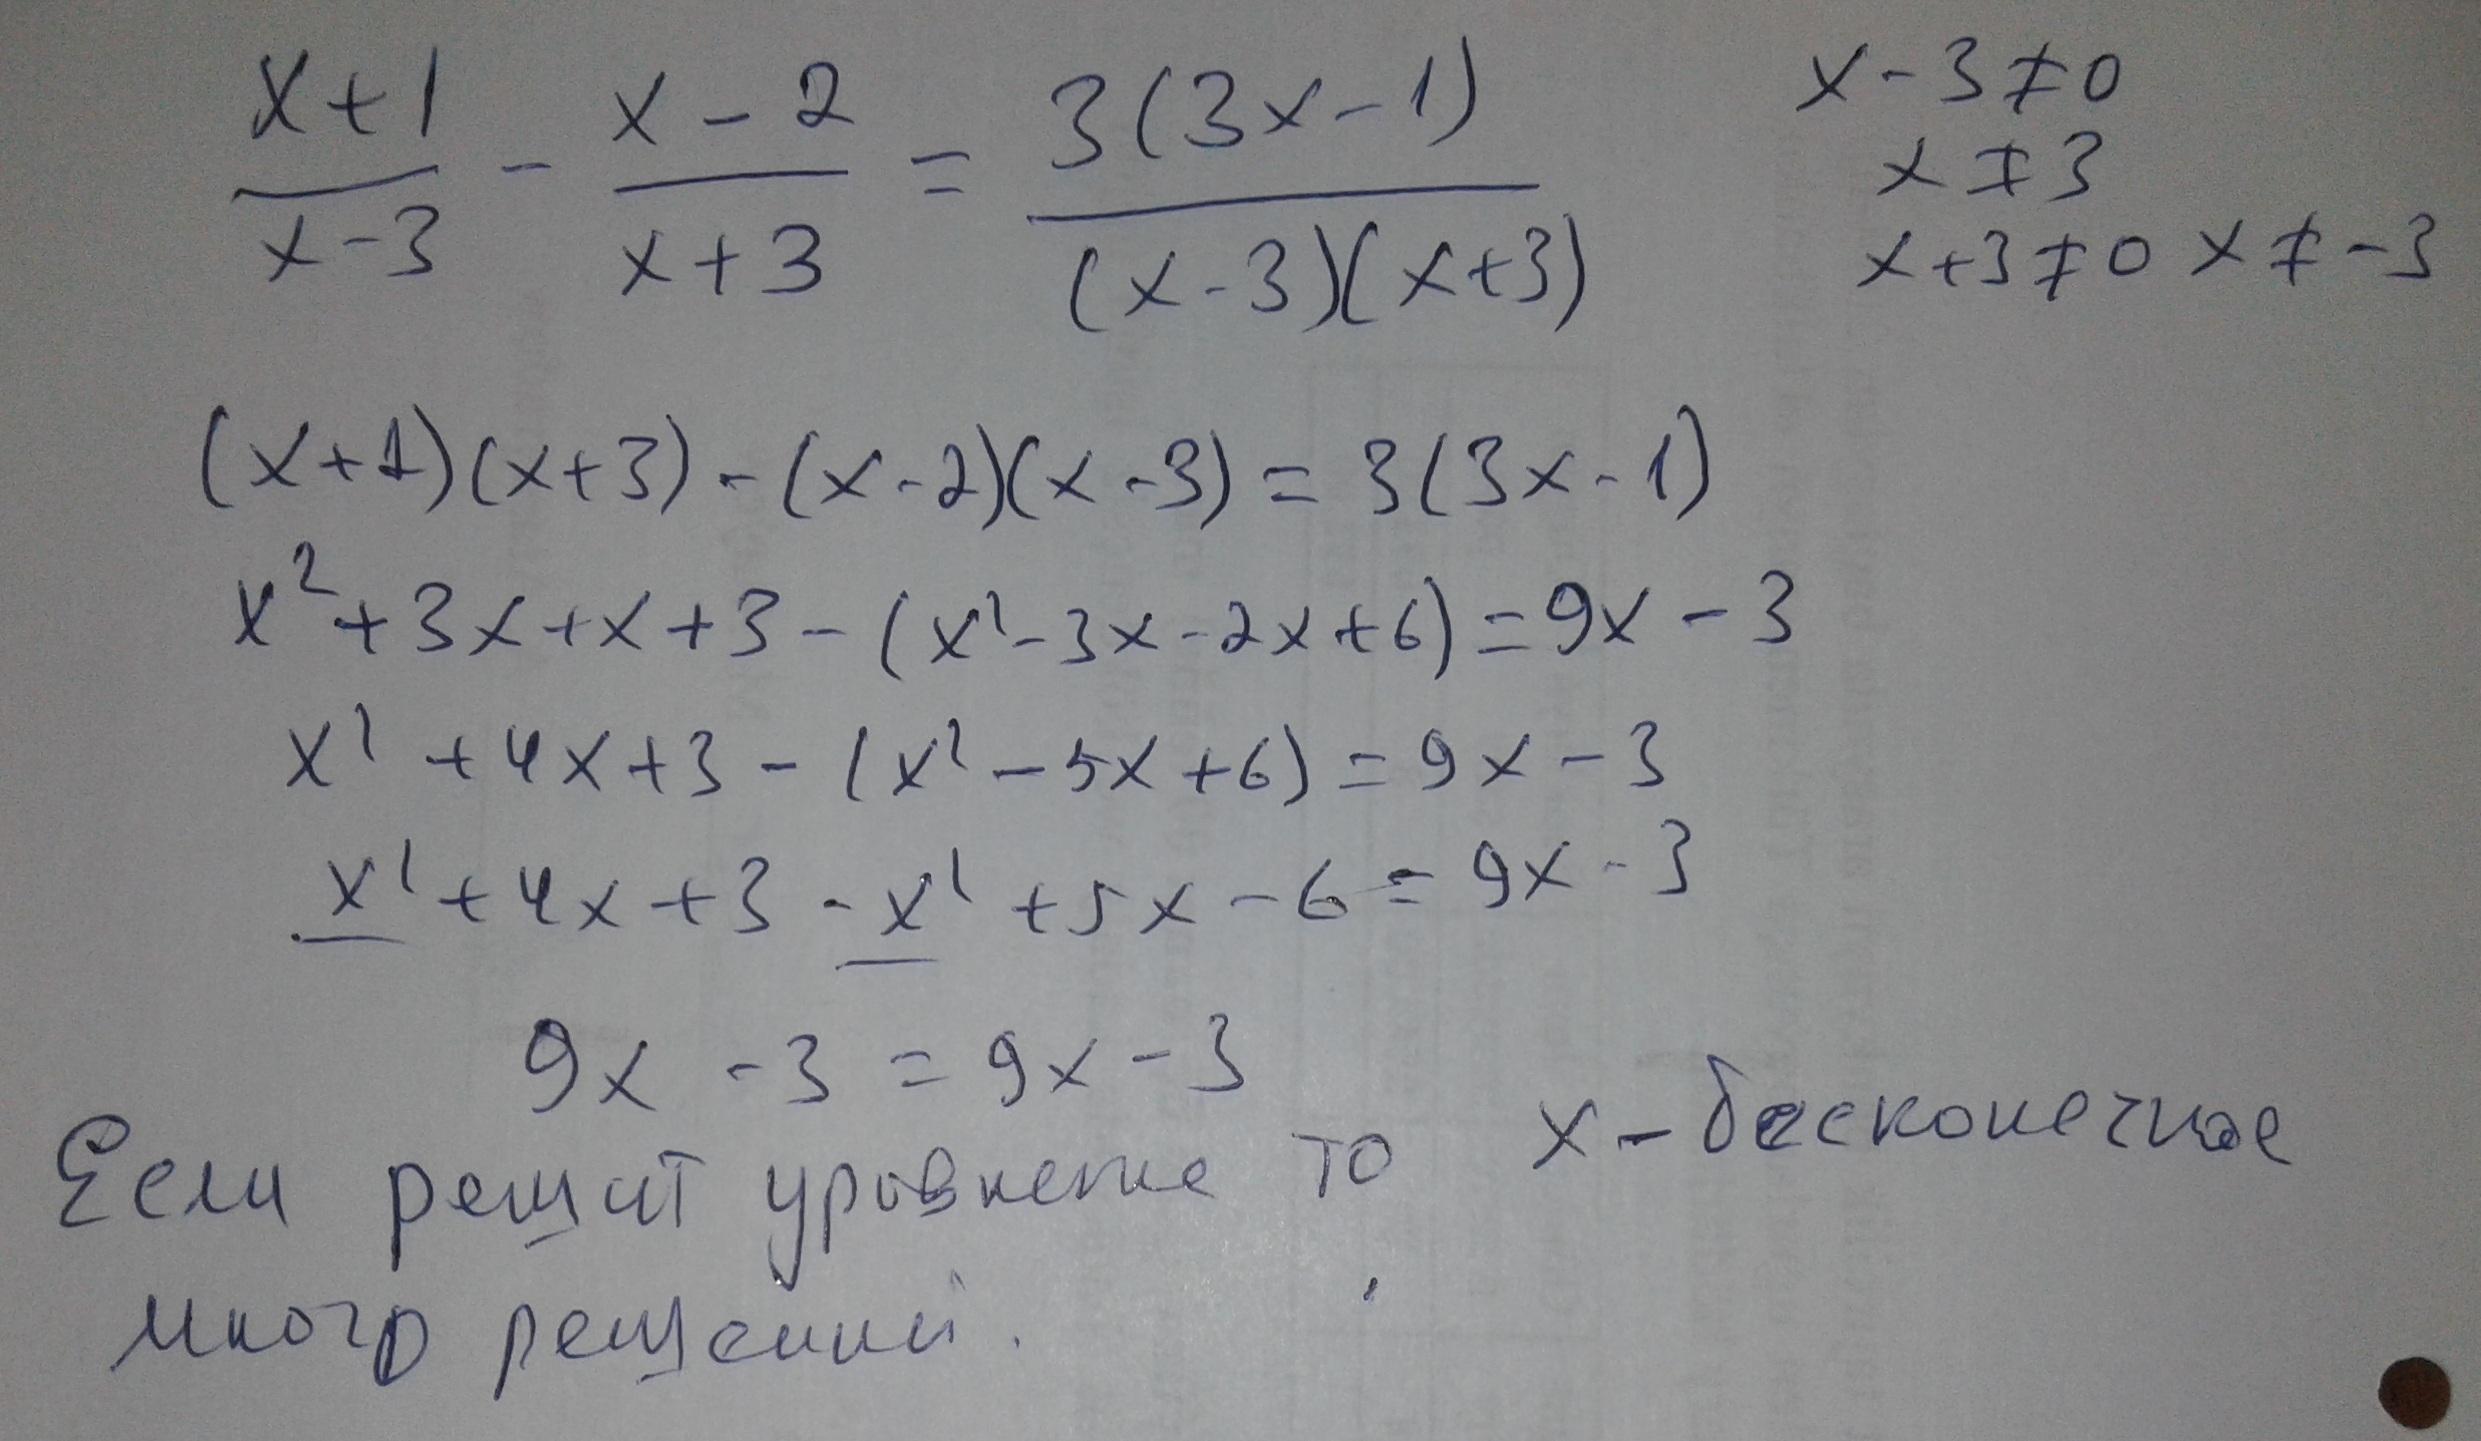 x+1/x-3 - x-2/x+3 = 3(3x-1)/(x-3)(x+3)
x-3≠0
x≠3
x+3≠0 x≠-3
(x+1)(x+3)-(x-2)(x-3)=3(3x-1)
x²+3x+x+3-(x²-3x-2x+6)=9x-3
x²+4x+3-(x²-5x+6)=9x-3
x²+4x+3-x²+5x-6=9x-3
9x-3=9x-3
Если решит уровнение то x-бесконечное
много решений.